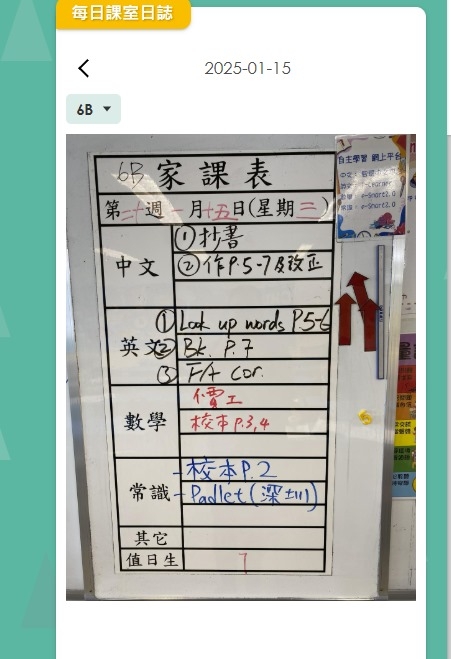 每日課室日誌
2025-01-15
6B
6B 家課表
第二十週 一月十五日(星期三)
中文
①抄書
②作P.5-7及改正
英文
① Look up words P.5-6
② Bk. P.7
③ F/A cor.
數學
校本P.3,4
常識
-校本P.2
-Padlet(深圳)
其它
值日生
7
自主學習 網上平台